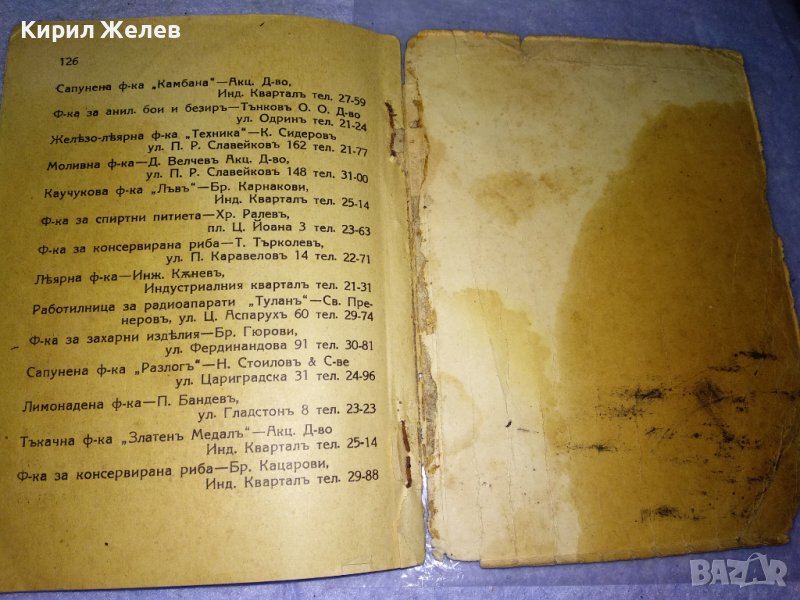 Кирил Желев
126
Сапунена ф-ка „Камбана"—Акц. Д-во,
Инд. Кварталъ тел. 27-59
Ф-ка за анил. бои и безиръ—Тънковъ О. О. Д-во
ул. Одринъ тел. 21-24
Желѣзо-лѣярна ф-ка „Техника"—К. Сидеровъ
ул. П. Р. Славейковъ 162 тел. 21-77
Моливна ф-ка—Д. Велчевъ Акц. Д-во,
ул. П. Р. Славейковъ 148 тел. 31-00
Каучукова ф-ка „Лъвъ"—Бр. Карнакови,
Инд. Кварталъ тел. 25-14
Ф-ка за спиртни питиета—Хр. Ралевъ,
пл. Ц. Йоана 3 тел. 23-63
Ф-ка за консервирана риба—Т. Търколевъ,
ул. П. Каравеловъ 14 тел. 22-71
Лѣярна ф-ка—Инж. Кѫневъ,
Индустриалния кварталъ тел. 21-31
Работилница за радиоапарати „Туланъ"—Св. Пре-
неровъ, ул. Ц. Аспарухъ 60 тел. 29-74
Ф-ка за захарни издѣлия—Бр. Гюрови,
ул. Фердинандова 91 тел. 30-81
Сапунена ф-ка „Разлогъ"—Н. Стоиловъ & С-ве
ул. Цариградска 31 тел. 24-96
Лимонадена ф-ка—П. Бандевъ,
ул. Гладстонъ 8 тел. 23-23
Тъкачна ф-ка „Златенъ Медалъ"—Акц. Д-во
Инд. Кварталъ тел. 25-14
Ф-ка за консервирана риба—Бр. Кацарови,
Инд. Кварталъ тел. 29-88
BAZAR